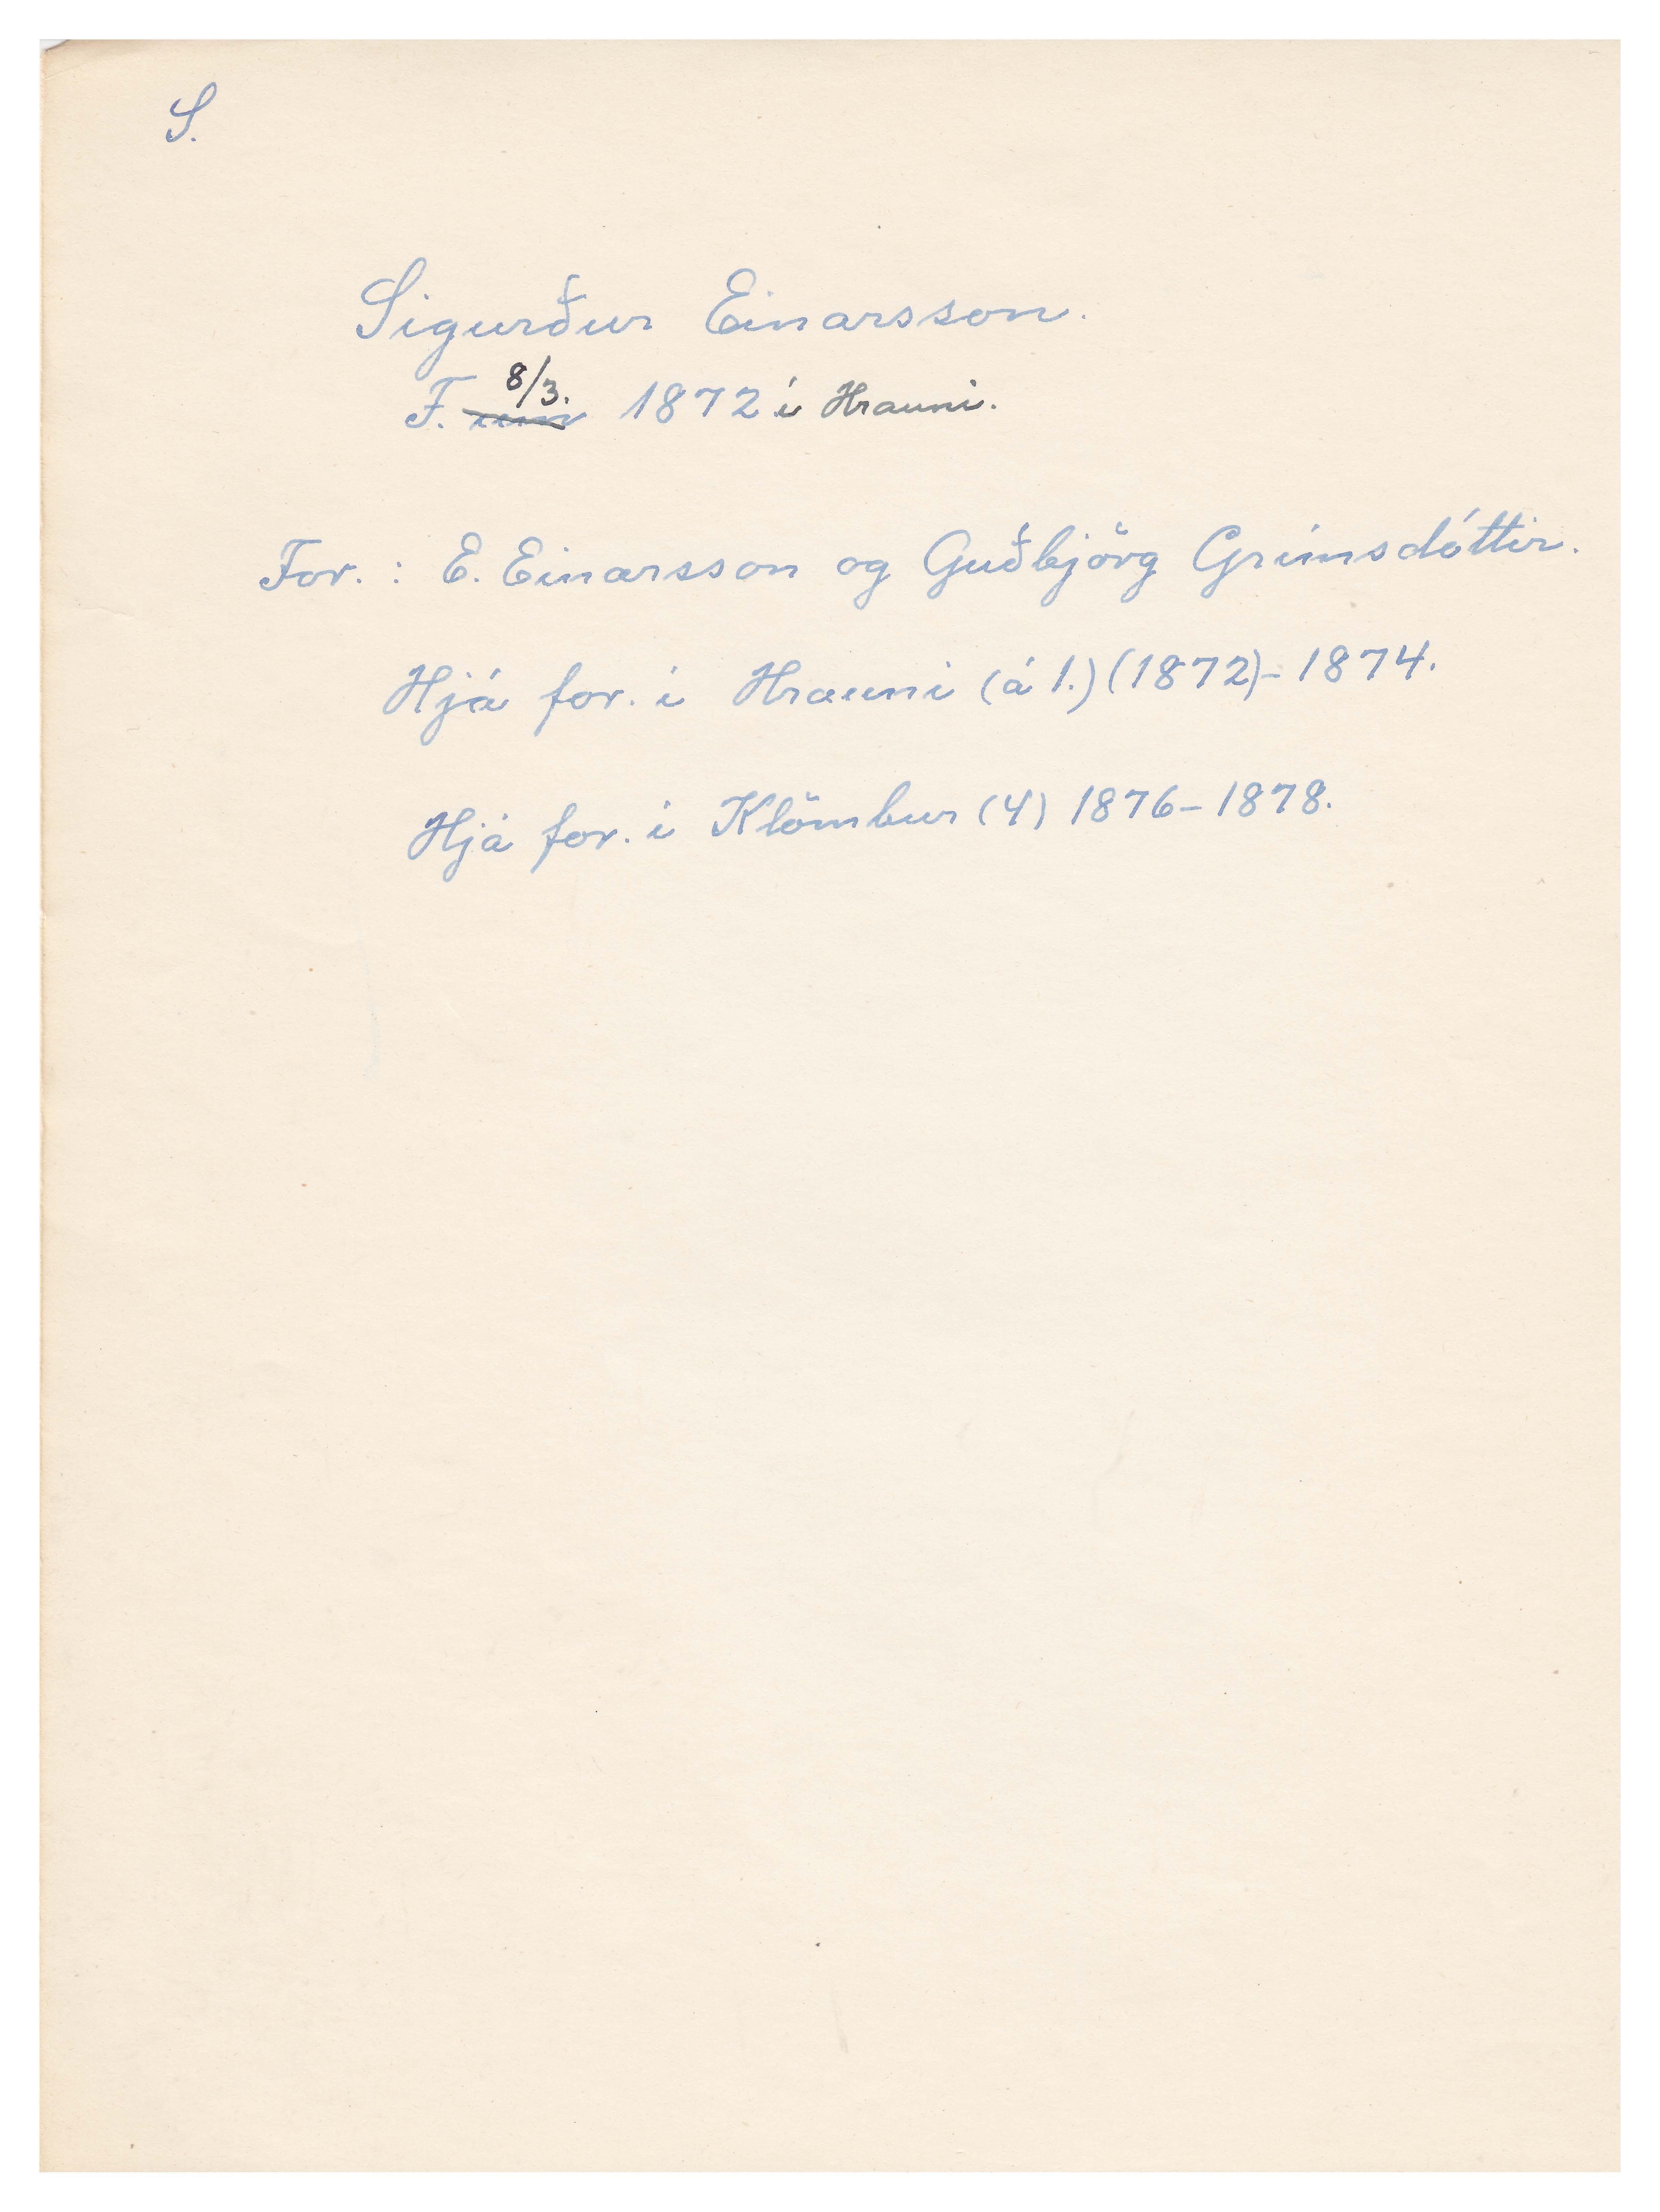 S.
Sigurður Einarsson.
F. 8/3. um 1872 í Hrauni.
For.: E. Einarsson og Guðbjörg Grímsdóttir.
Hjá for. í Hrauni (á 1.) (1872)-1874.
Hjá for. í Klömbur (4) 1876-1878.